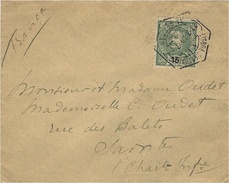 France
15
Monsieur et Madame Oudet
Mademoiselle E. Oudet
rue des Balets
Saintes
(Charte Infre)